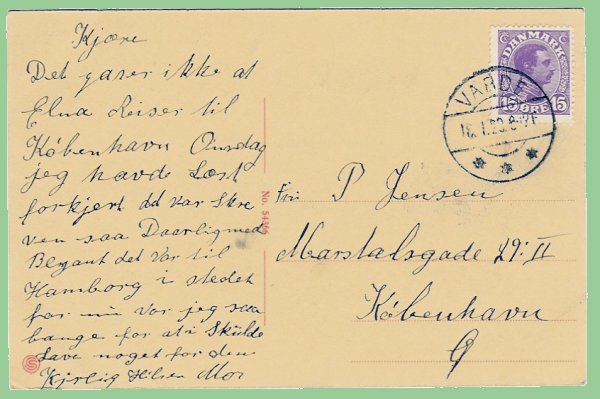 Kjære
Det gaar ikke at
Elna Reiser til
København Onsdag
jeg havde Læst
forkjert dd var Skre
ven saa Daarlig med
Blyant det var til
Hamborg i stedet
for nu var jeg saa
bange for at i Skulde
Lave noget for den
Kjrlig Hilsen Mor
No. 54366
DANMARK
15 ØRE 15
VARDE
Frú P Jensen
Marstalsgade 29: II
København
Ø